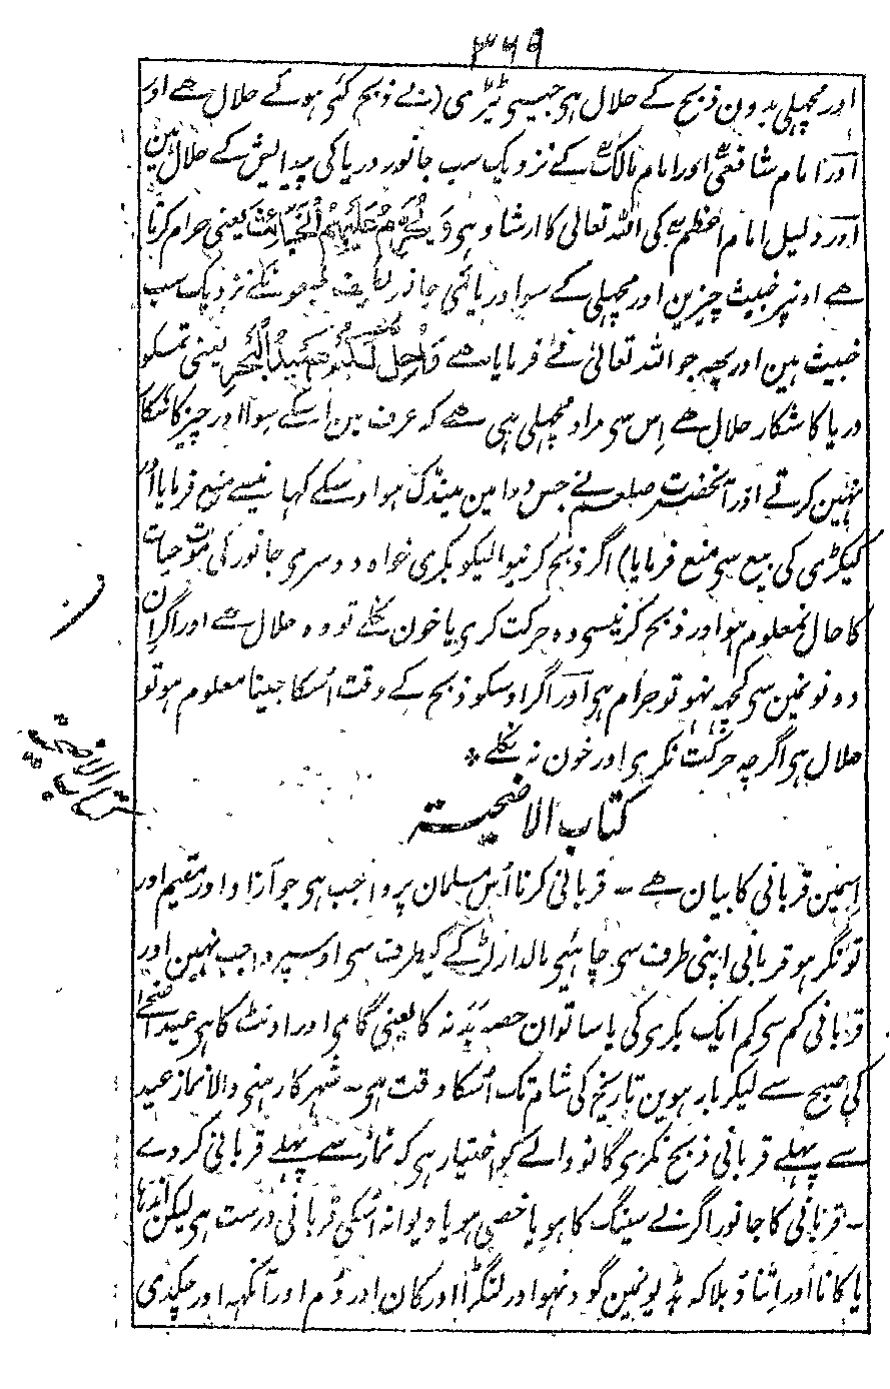 ۳۶۹
اور مچھلی بدون ذبح کے حلال ہی جیسی ٹیڑی (بے ذبح کئی ہوئے حلال ہے اور
اور امام شافعیؒ اور امام مالکؒ کے نزدیک سب جانور دریا کی پیدایش کے حلال ہین
اور دلیل امام اعظمؒ کی اللہ تعالی کا ارشاد ہی وَيُحَرِّمُ عَلَيْهِمُ الْخَبَائِثَ یعنی حرام کرتا
ہے اونپر خبیث چیزین اور مچھلی کے سوا دریائی جانور لطیف طبعونکے نزدیک سب
خبیث ہین اور یہہ جو اللہ تعالیٰ نے فرمایا ہے وَاُحِلَّ لَكُمْ صَيْدُ الْبَحْرِ یعنی تمکو
دریا کا شکار حلال ہے اِس سی مراد مچھلی ہی ہے کہ عرف مین اُسکے سوا اور چیز کا شکار
نہین کرتے اور آنحضرت صلعم نے جس دوا مین مینڈک ہوا وسکے کہانیسے منع فرمایا اور
کیکڑی کی بیع سی منع فرمایا) اگر ذبح کرنیوالیکو بکری خواہ دوسری جانور کی موت حیات
کا حال نمعلوم ہو اور ذبح کرنیسی وہ حرکت کری یا خون نکلے تو وہ حلال ہے اور اگر ان
دونونمین سی کچھہ نہو تو حرام ہی اور اگر اوسکو ذبح کے وقت اُسکا جینا معلوم ہو تو
حلال ہی اگرچہ حرکت نکری اور خون نہ نکلے *
کتاب الاضحیۃ
کتاب الاضحیۃ
اِسمین قربانی کا بیان ہے ۔ قربانی کرنا اُس مسلمان پر واجب ہی جو آزاد اور مقیم اور
تونگر ہو قربانی اپنی طرف سی چاہئیی مالدار لڑکے کیطرف سی اوسپر واجب نہین اور
قربانی کم سی کم ایک بکری کی یا ساتوان حصہ بَدَنہ کا یعنی گای اور اونٹ کا ہی عید اضحے
کی صبح سے لیکر بارہوین تاریخ کی شام تک اُسکا وقت ہی ۔ شہر کا رہنی والا نماز عید
سے پہلے قربانی ذبح نکری گانو والے کو اختیار ہی کہ نماز سے پہلے قربانی کردے
۔ قربانی کا جانور اگر بے سینگ کا ہو یا خصی ہو یا دیوانہ اُسکی قربانی درست ہی لیکن اندہا
یا کانا اور اِتنا دُبلا کہ ہڈیونمین گود نہو اور لنگڑا اور کان اور دُم اور آنکہہ اور چکدی